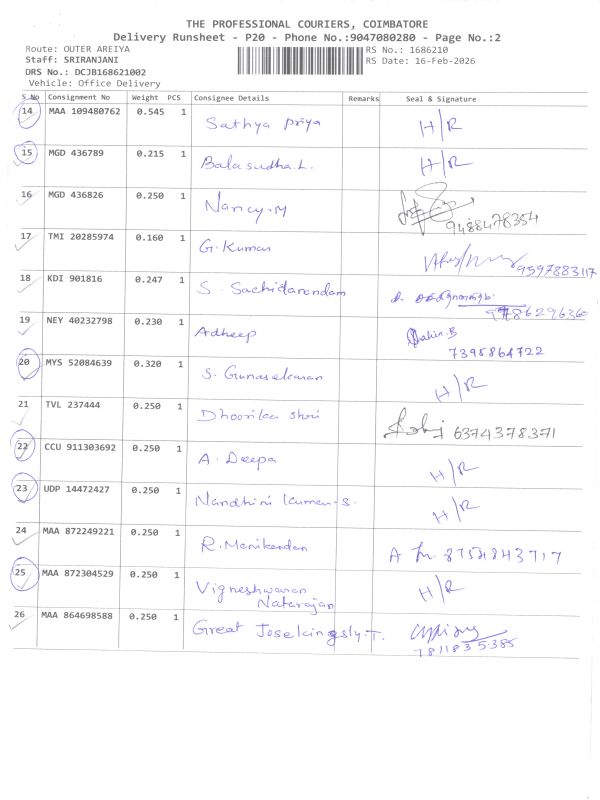 THE PROFESSIONAL COURIERS, COIMBATORE
Delivery Runsheet - P20 - Phone No.:9047080280 - Page No.:2
Route: OUTER AREIYA RS No.: 1686210
Staff: SRIRANJANI RS Date: 16-Feb-2026
DRS No.: DCJB168621002
Vehicle: Office Delivery
S No Consignment No Weight PCS Consignee Details Remarks Seal & Signature
14 MAA 109480762 0.545 1 Sathya priya H/R
15 MGD 436789 0.215 1 Balasudha.L. H/R
16 MGD 436826 0.250 1 Nancy.M 9488478354
17 TMI 20285974 0.160 1 G.Kumar 9597883117
18 KDI 901816 0.247 1 S. Sachidanandam
19 NEY 40232798 0.230 1 Adheep
7395864722
20 MYS 52084639 0.320 1 S. Gunasekaran H/R
21 TVL 237444 0.250 1 Dhoorika shri 6374378371
22 CCU 911303692 0.250 1 A. Deepa H/R
23 UDP 14472427 0.250 1 Nandhini Kumar.S. H/R
24 MAA 872249221 0.250 1 R.Manikandan 8754843717
25 MAA 872304529 0.250 1 Vigneshwaran H/R
Natarajan
26 MAA 864698588 0.250 1 Great Josekingsly.T.
7811835385